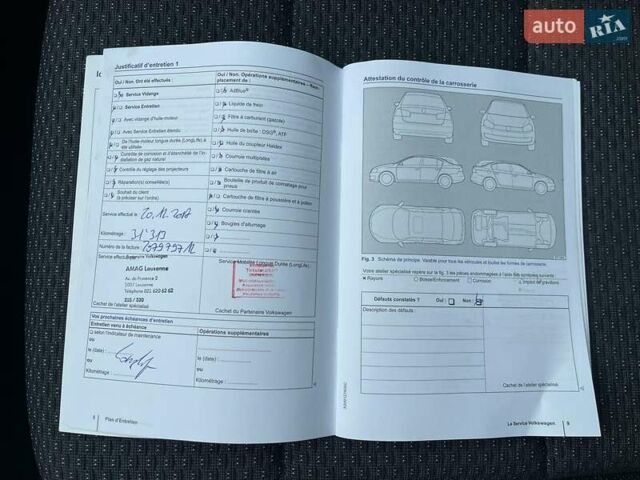 auto RIA .com
Justificatif d'entretien 1
Oui / Non. Ont été effectués :
Service Vidange
Service Entretien
Avec vidange d'huile-moteur
Avec Service Entretien étendu
De l'huile-moteur longue durée (LongLife) a été utilisée
Contrôle de corrosion et d'étanchéité de l'installation de gaz naturel
Contrôle du réglage des projecteurs
Réparation(s) conseillée(s)
Souhait du client
(à préciser sur l'ordre)
Service effectué le : 20.12.2017
Kilométrage : 31'313
Numéro de la facture :
AMAG Lausanne
Av. de Provence 2
1007 Lausanne
Cachet de l'atelier spécialisé
Oui / Non. Opérations supplémentaires – Remplacement de :
AdBlue®
Liquide de frein
Filtre à carburant (gazole)
Huile de boîte : DSG®, ATF
Huile du coupleur Haldex
Courroie multipistes
Cartouche de filtre à air
Bouteille de produit de colmatage pour pneus
Cartouche de filtre à poussière et à pollen
Courroie crantée
Bougies d'allumage
Service Mobilité Longue Durée (LongLife)
Cachet du Partenaire Volkswagen
Vos prochaines échéances d'entretien
Entretien venu à échéance
selon l'indicateur de maintenance
ou
le (date) :
ou
Kilométrage :
Opérations supplémentaires
le (date) :
ou
Kilométrage :
8 Plan d'Entretien
Attestation du contrôle de la carrosserie
Fig. 3 Schéma de principe. Valable pour tous les véhicules et toutes les formes de carrosserie.
Votre atelier spécialisé repère sur la fig. 3 les pièces endommagées à l'aide des symboles suivants :
Rayure
Bosse/Enfoncement
Corrosion
Impact de gravillons
Défauts constatés ? Oui : Non :
Description des défauts :
Cachet de l'atelier spécialisé
Le Service Volkswagen 9